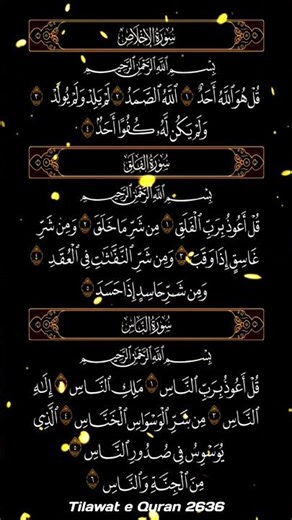 سُورَةُ الإِخْلَاصِ
بِسْمِ اللَّهِ الرَّحْمَٰنِ الرَّحِيمِ
قُلْ هُوَ ٱللَّهُ أَحَدٌ ١ ٱللَّهُ ٱلصَّمَدُ ٢ لَمْ يَلِدْ وَلَمْ يُولَدْ ٣
وَلَمْ يَكُن لَّهُۥ كُفُوًا أَحَدٌۢ ٤
سُورَةُ الفَلَقِ
بِسْمِ اللَّهِ الرَّحْمَٰنِ الرَّحِيمِ
قُلْ أَعُوذُ بِرَبِّ ٱلْفَلَقِ ١ مِن شَرِّ مَا خَلَقَ ٢ وَمِن شَرِّ
غَاسِقٍ إِذَا وَقَبَ ٣ وَمِن شَرِّ ٱلنَّفَّٰثَٰتِ فِى ٱلْعُقَدِ ٤
وَمِن شَرِّ حَاسِدٍ إِذَا حَسَدَ ٥
سُورَةُ النَّاسِ
بِسْمِ اللَّهِ الرَّحْمَٰنِ الرَّحِيمِ
قُلْ أَعُوذُ بِرَبِّ ٱلنَّاسِ ١ مَلِكِ ٱلنَّاسِ ٢ إِلَٰهِ
ٱلنَّاسِ ٣ مِن شَرِّ ٱلْوَسْوَاسِ ٱلْخَنَّاسِ ٤ ٱلَّذِى
يُوَسْوِسُ فِى صُدُورِ ٱلنَّاسِ ٥
مِنَ ٱلْجِنَّةِ وَٱلنَّاسِ ٦
Tilawat e Quran 2636